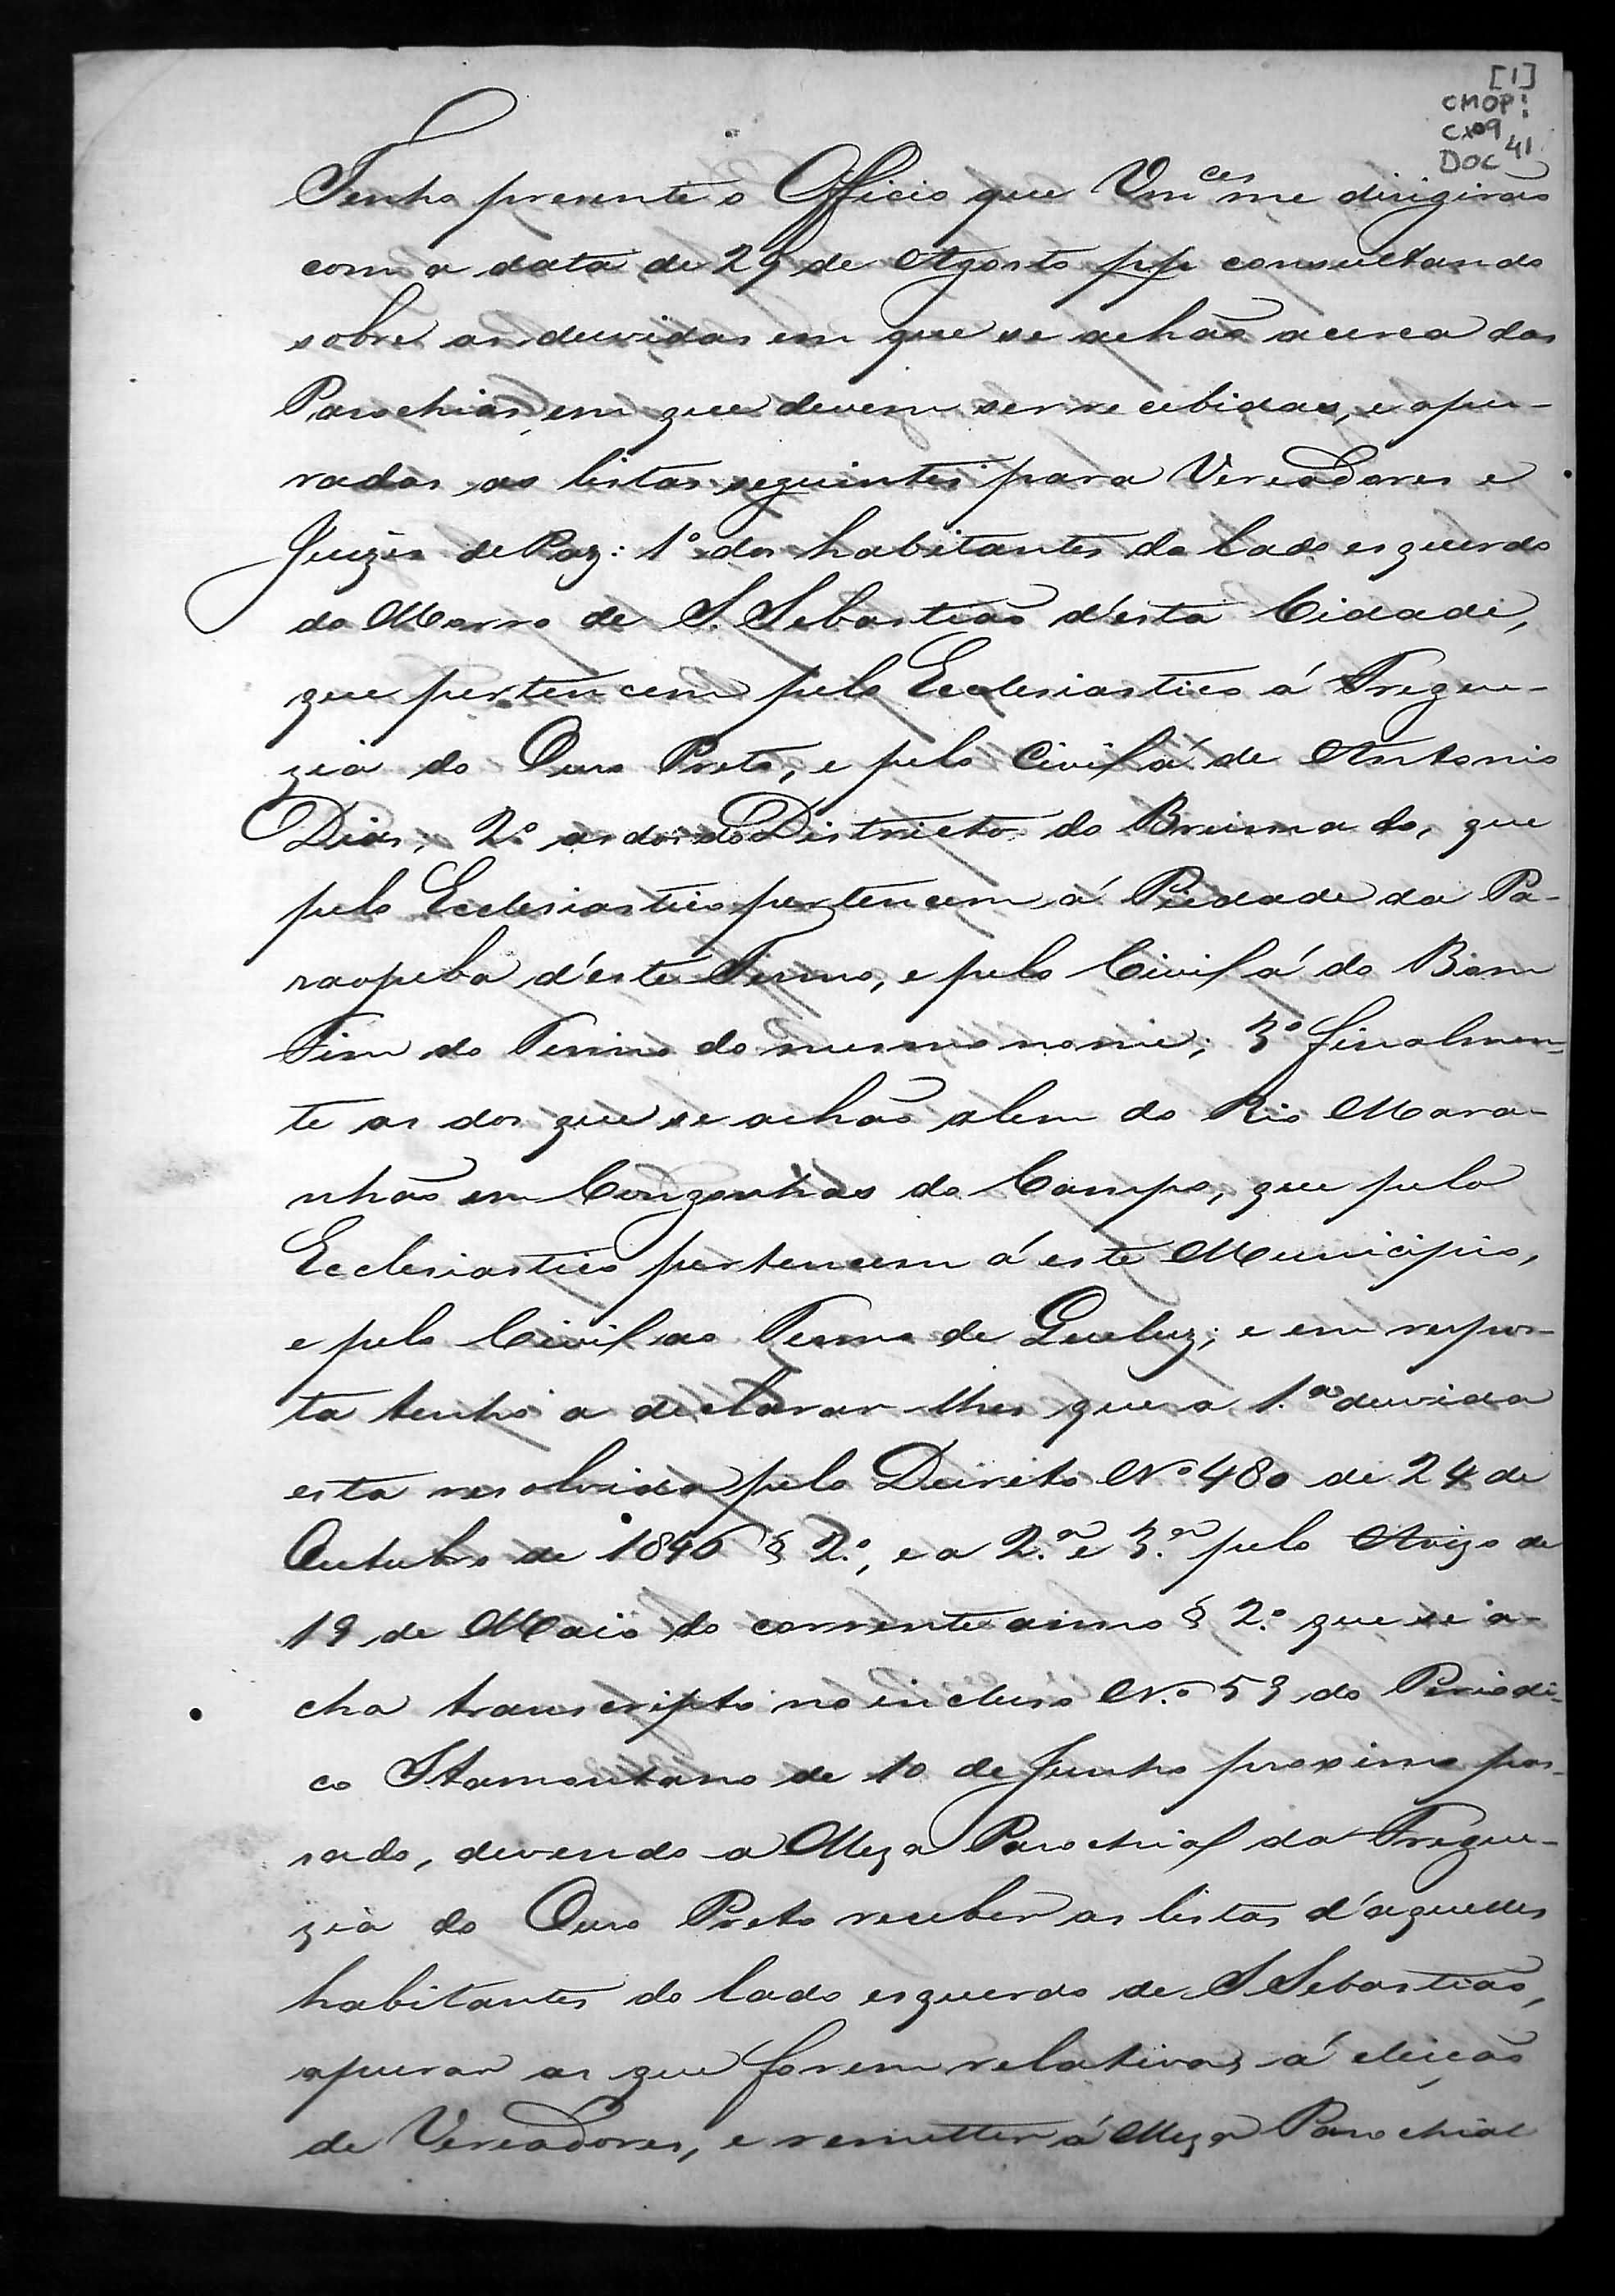 [1]
CMOP:
CX09
DOC 41
Tenho presente o Officio que Vm.ces me dirigirão
com a data de 29 de Agosto pp consultando
sobre as duvidas em que se achão acerca das
Parochias, em que devem ser recebidas, e apu-
radas as listas seguintes para Vereadores e
Juizes de Paz: 1º dos habitantes do lado esquerdo
do Morro de S. Sebastião d'esta Cidade,
que pertencem pelo Ecclesiastico á Fregue-
zia do Ouro Preto, e pelo Civil á de Antonio
Dias; 2.º as dos do Districto do Brumado, que
pelo Ecclesiastico pertencem á Piedade da Pa-
raopeba d'este Termo, e pelo Civil á do Bom
Fim do Termo do mesmo nome; 3º finalmen-
te as dos que se achão alem do Rio Mara-
nhão em Congonhas do Campo, que pelo
Ecclesiastico pertencem á este Municipio,
e pelo Civil ao Termo de Queluz; e em respos-
ta tenho a declarar-lhes que a 1.ª duvida
esta resolvida pelo Decreto Nº 480 de 24 de
Outubro de 1846 § 2.º, e a 2.ª e 3.ª pelo Avizo de
19 de Maio do corrente anno § 2.º que se a-
cha transcripto no incluso N.º 59 do Periodi-
co Itamontano de 10 de Junho proximo pas-
sado, devendo a Meza Parochial da Fregue-
zia do Ouro Preto receber as listas d'aquelles
habitantes do lado esquerdo de S Sebastião,
apurar as que forem relativas á eleição
de Vereadores, e remetter á Meza Parochial